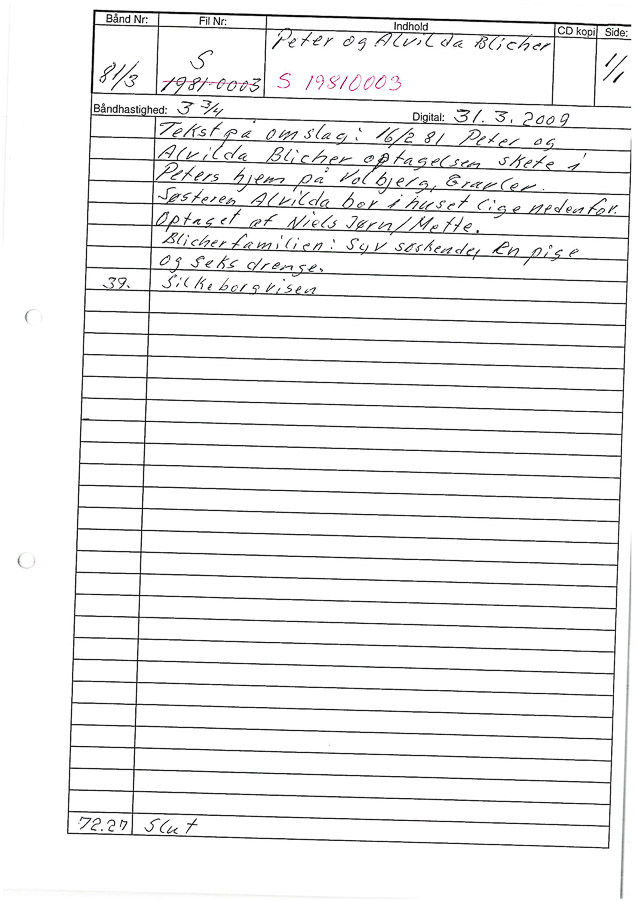 Bånd Nr: Fil Nr: Indhold CD kopi Side:
81/3 S 1981-0003 Peter og Alvilda Blicher 1/1
S 19810003
Båndhastighed: 3 3/4 Digital: 31.3.2009
Tekst på omslag: 16/2 81 Peter og
Alvilda Blicher optagelsen skete i
Peters hjem på Volbjerg,
Søsteren Alvilda bor i huset lige nedenfor.
Optaget af Niels Jørn/Mette.
Blicherfamilien: Syv søskende, En pige
og seks drenge.
39. Silkeborgvisen
72.27 Slut